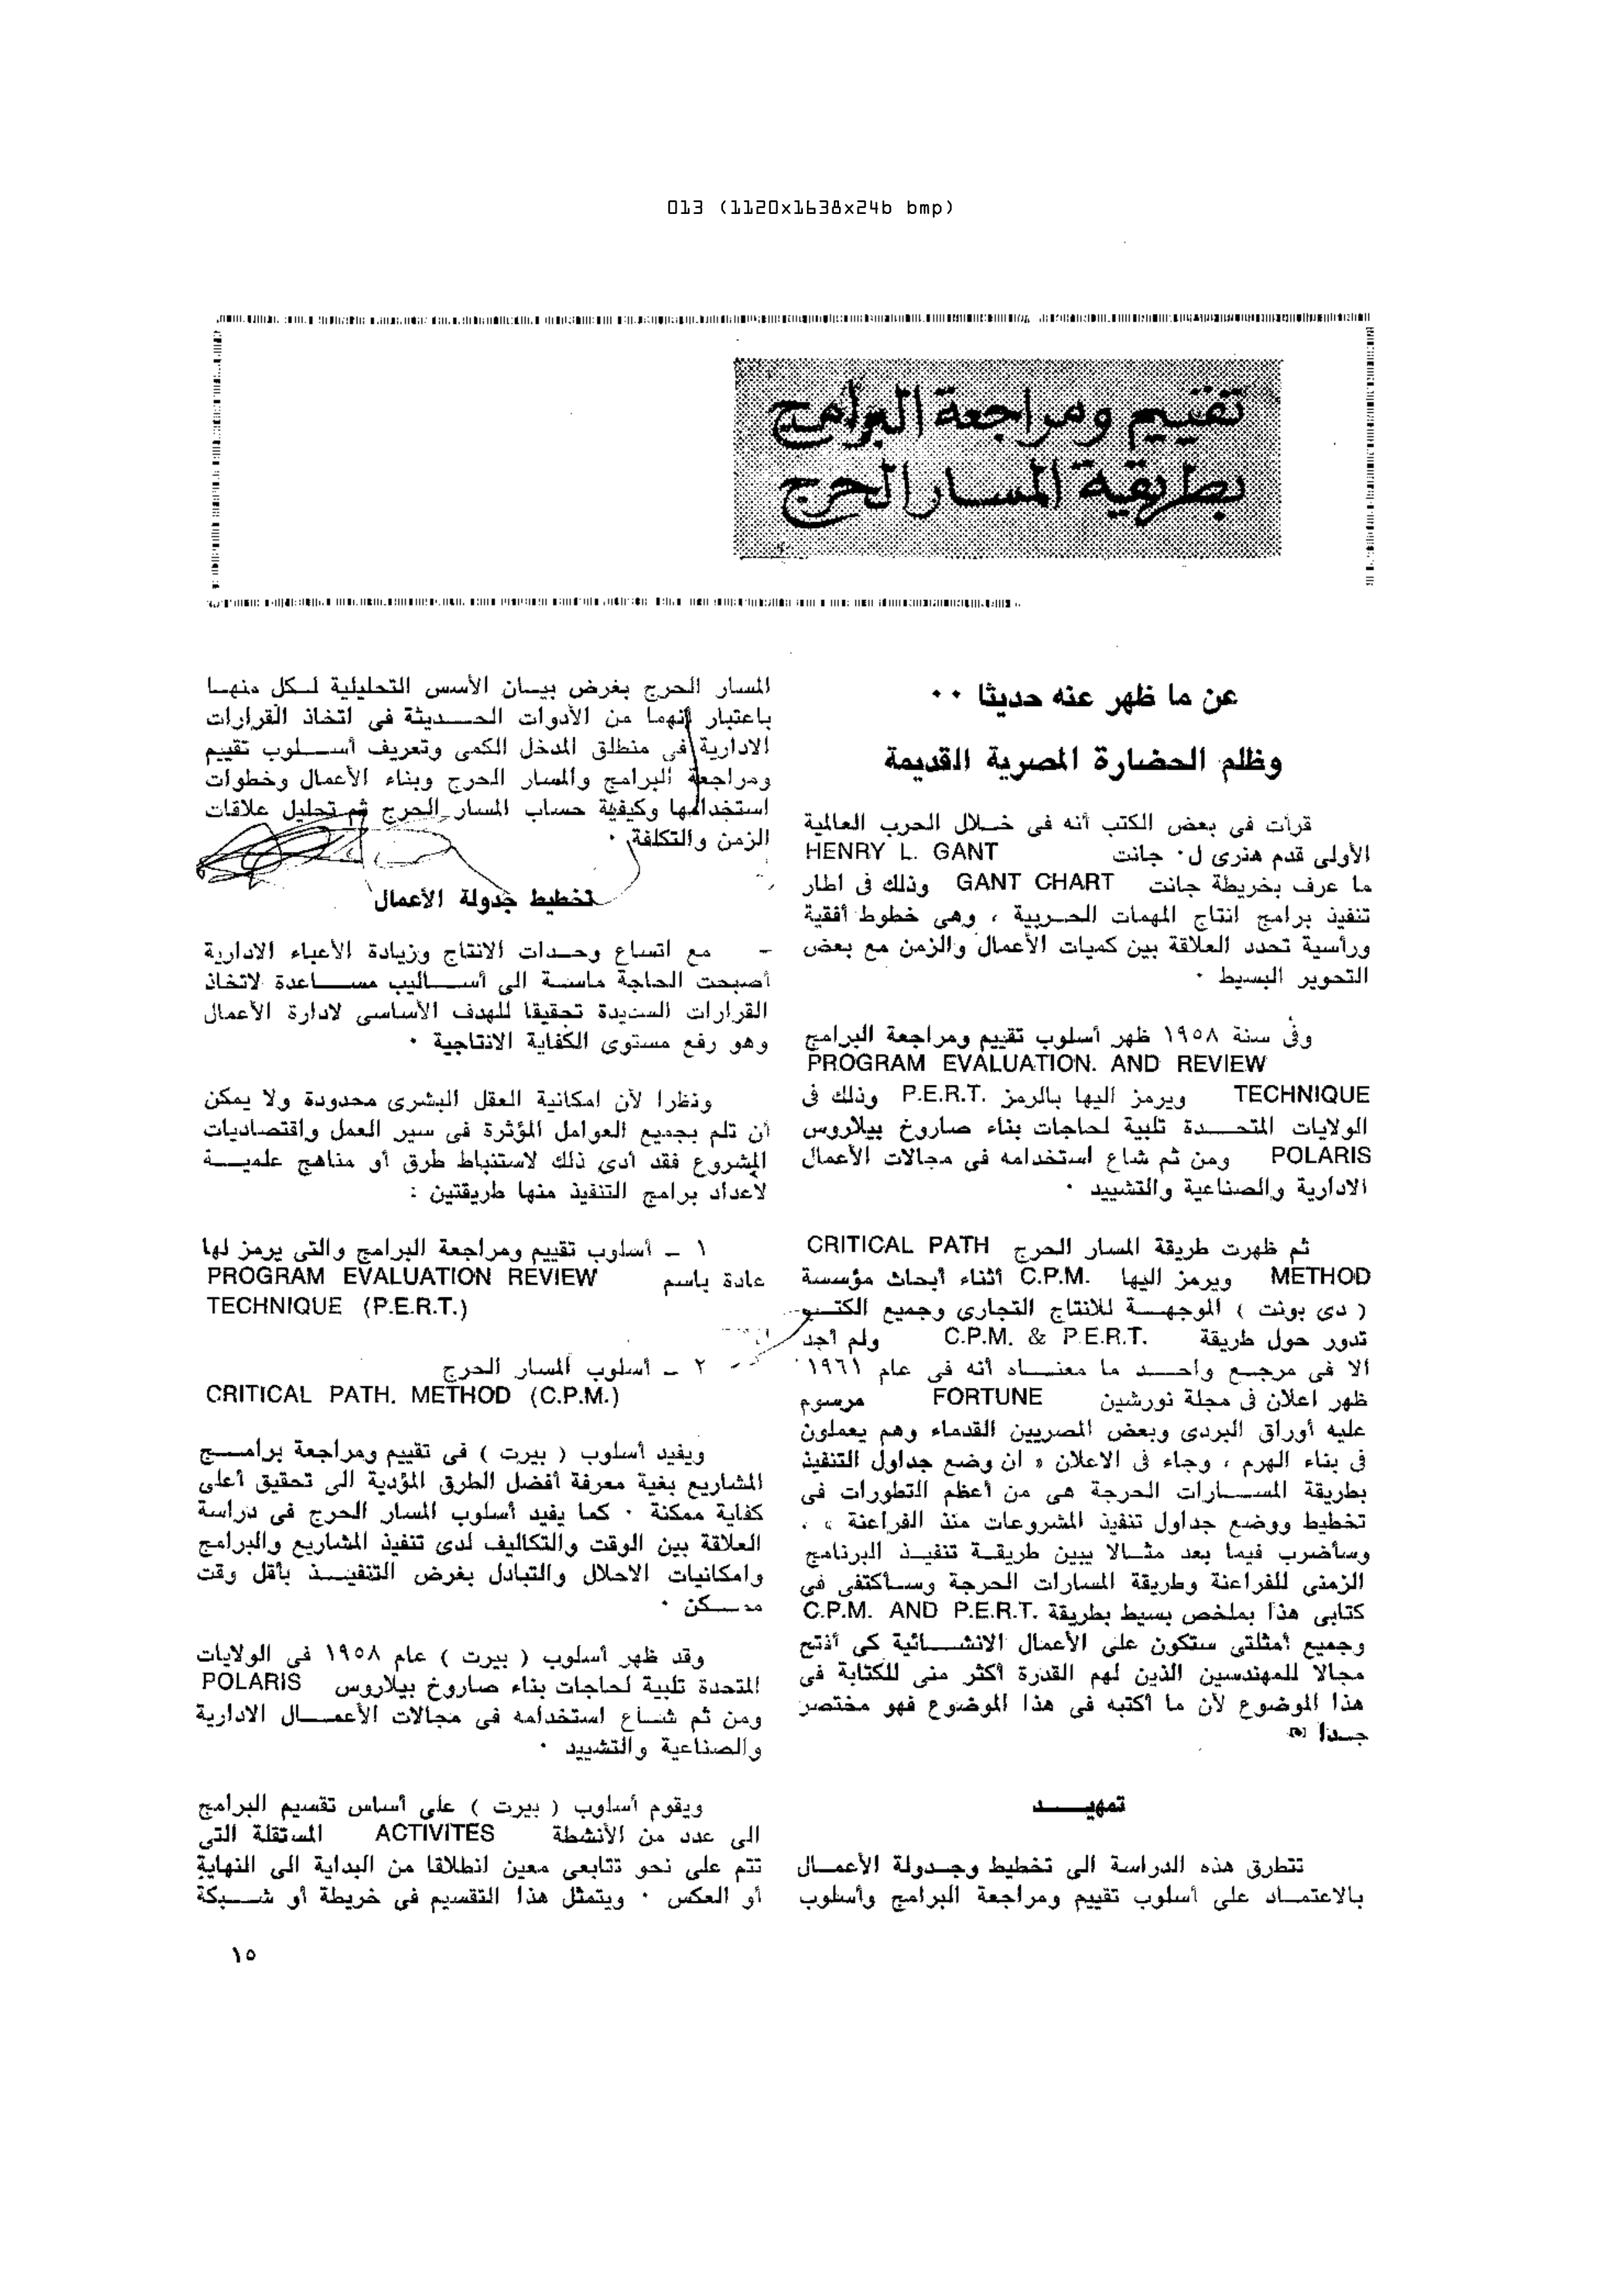 013 (1120x1638x24b bmp)
تقييم ومراجعة البرامج
بطريقية المسار الحرج
عن ما ظهر عنه حديثا ٠٠
وظلم الحضارة المصرية القديمة
قرأت فى بعض الكتب أنه فى خلال الحرب العالمية
الأولى قدم هنرى ل٠ جانت HENRY L. GANT
ما عرف بخريطة جانت GANT CHART وذلك فى اطار
تنفيذ برامج انتاج المهمات الحربية ، وهى خطوط أفقية
ورأسية تحدد العلاقة بين كميات الأعمال والزمن مع بعض
التحوير البسيط ٠
وفى سنة ١٩٥٨ ظهر أسلوب تقييم ومراجعة البرامج
PROGRAM EVALUATION. AND REVIEW
TECHNIQUE ويرمز اليها بالرمز P.E.R.T. وذلك فى
الولايات المتحدة تلبية لحاجات بناء صاروخ بيلاروس
POLARIS ومن ثم شاع استخدامه فى مجالات الأعمال
الادارية والصناعية والتشييد ٠
ثم ظهرت طريقة المسار الحرج CRITICAL PATH
METHOD ويرمز اليها C.P.M. أثناء أبحاث مؤسسة
( دى بونت ) الموجهة للانتاج التجارى وجميع الكتب
تدور حول طريقة C.P.M. & P.E.R.T. ولم أجد
الا فى مرجع واحد ما معناه أنه فى عام ١٩٦١
ظهر اعلان فى مجلة نورشين FORTUNE مرسوم
عليه أوراق البردى وبعض المصريين القدماء وهم يعملون
فى بناء الهرم ، وجاء فى الاعلان « ان وضع جداول التنفيذ
بطريقة المسارات الحرجة هى من أعظم التطورات فى
تخطيط ووضع جداول تنفيذ المشروعات منذ الفراعنة » .
وسأضرب فيما بعد مثالا يبين طريقة تنفيذ البرنامج
الزمنى للفراعنة وطريقة المسارات الحرجة وسأكتفى فى
كتابى هذا بملخص بسيط بطريقة C.P.M. AND P.E.R.T.
وجميع أمثلتى ستكون على الأعمال الانشائية كى أفتح
مجالا للمهندسين الذين لهم القدرة أكثر منى للكتابة فى
هذا الموضوع لأن ما أكتبه فى هذا الموضوع فهو مختصر
جدا
تمهيد
تتطرق هذه الدراسة الى تخطيط وجدولة الأعمال
بالاعتماد على أسلوب تقييم ومراجعة البرامج وأسلوب
المسار الحرج بغرض بيان الأسس التحليلية لكل منها
باعتبار أنهما من الأدوات الحديثة فى اتخاذ القرارات
الادارية فى منطلق المدخل الكمى وتعريف أسلوب تقييم
ومراجعة البرامج والمسار الحرج وبناء الأعمال وخطوات
استخدامها وكيفية حساب المسار الحرج ثم تحليل علاقات
الزمن والتكلفة ٠
تخطيط جدولة الأعمال
– مع اتساع وحدات الانتاج وزيادة الأعباء الادارية
أصبحت الحاجة ماسة الى أساليب مساعدة لاتخاذ
القرارات السديدة تحقيقا للهدف الأساسى لادارة الأعمال
وهو رفع مستوى الكفاية الانتاجية ٠
ونظرا لأن امكانية العقل البشرى محدودة ولا يمكن
أن تلم بجميع العوامل المؤثرة فى سير العمل واقتصاديات
المشروع فقد أدى ذلك لاستنباط طرق أو مناهج علمية
لأعداد برامج التنفيذ منها طريقتين :
١ – أسلوب تقييم ومراجعة البرامج والتى يرمز لها
عادة باسم PROGRAM EVALUATION REVIEW
TECHNIQUE (P.E.R.T.)
٢ – أسلوب المسار الحرج
CRITICAL PATH. METHOD (C.P.M.)
ويفيد أسلوب ( بيرت ) فى تقييم ومراجعة برامج
المشاريع بغية معرفة أفضل الطرق المؤدية الى تحقيق أعلى
كفاية ممكنة ٠ كما يفيد أسلوب المسار الحرج فى دراسة
العلاقة بين الوقت والتكاليف لدى تنفيذ المشاريع والبرامج
وامكانيات الاحلال والتبادل بغرض التنفيذ بأقل وقت
ممكن ٠
وقد ظهر أسلوب ( بيرت ) عام ١٩٥٨ فى الولايات
المتحدة تلبية لحاجات بناء صاروخ بيلاروس POLARIS
ومن ثم شاع استخدامه فى مجالات الأعمال الادارية
والصناعية والتشييد ٠
ويقوم أسلوب ( بيرت ) على أساس تقسيم البرامج
الى عدد من الأنشطة ACTIVITES المستقلة التى
تتم على نحو تتابعى معين انطلاقا من البداية الى النهاية
أو العكس ٠ ويتمثل هذا التقسيم فى خريطة أو شبكة
١٥